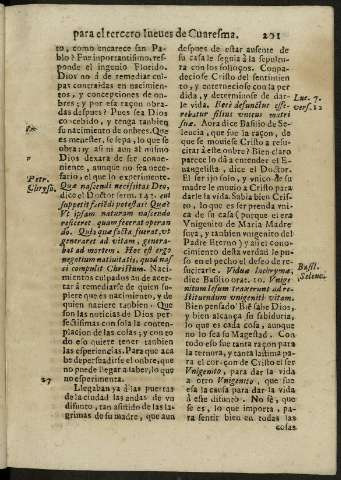 para el tercero Iueves de Cuaresma. 201
to, como encarece san Pa-
blo? Fue importantissimo, res-
ponde el ingenio Florido.
Dios no á de remediar cul-
pas contraidas en nacimien-
tos, y concepciones de on-
bres; y por esa raçon obra-
das despues? Pues sea Dios
concebido, y tenga tanbien
su nacimiento de onbres. Que
es menester, se sepa, lo que se
obra: y asi aun al mismo
Dios dexara de ser conve-
niente, aunque no sea nece-
sario, el que lo experimente.
Quæ nascendi necessitas Deo,
dice el Doctor serm. 142. cui
suppetit faciendi potestas? Quæ?
Vt ipsam naturam nascendo
resiceret quam fecerat operan-
do. Quis quæ facta fuerat, vt
generaret ad vitam, genera-
bat ad mortem. Hæc est ergo
negotium nativitatis, quod nas-
si compulit Christum. Nacimien-
tos culpados an de acer-
tar á remediarse de quien su-
piere que es nacimiento, y de
quien naciere tanbien. Que
son las noticias de Dios per-
fectisimas con sola la contem-
placion de las cosas; y con to-
do eso quiere tener tanbien
las esperiencias. Para que aca-
be de persuadirse el onbre, que
no puede llegar a saber, lo que
no esperimenta.
27 Llegaban ya á las puertas
de la ciudad las andas de vn
difunto, tan asistido de las la-
grimas de su madre, que aun
Petr.
Chryso.
despues de estar ausente de
su casa le seguia á la sepultu-
ra con los solloços. Conpa-
deciose Cristo del sentimien-
to, y enterneciose con la per-
dida, y determinose de dar-
le vida. Berè defunctus effe-
rebatur filius vnicus matri
suæ. Aora dice Basilio de Se-
leucia, que fue la raçon, de
que se moviese Cristo a resu-
citar á este onbre? Bien claro
parece lo dá a entender el E-
vangelista, dice el Doctor.
El ser ijo solo, y vnico de su
madre le muvio a Cristo para
darle la vida. Sabia bien Cris-
to, lo que es ser prenda vnica
de su casa (porque el era
Vnigenito de Maria Madre
suya, y tanbien vnigenito del
Padre Eterno) y asi el cono-
cimiento desta verdad le pu-
so en el pecho el deseo de re-
sucitarle. Viduæ lachrymæ,
dice Basilio orat. 10. Vnige-
nitum Iesum traxerunt ad re-
stituendum vnigeniti vitam.
Bien pensado! Bié sabe Dios,
y bien alcança su sabiduria,
lo que es cada cosa, aunque
no lo sea su Magestad. Con
todo eso fue tanta raçon para
la ternura, y tanta lastima pa-
ra el corçon de Cristo el ser
Vnigenito, para dar la vida
a otro Vnigenito, que fue
esa la causa para dar la vida
á este difunto. No sè, que
se es, lo que importa, pa-
ra sentir bien en todas las
cosas
Luc. 7.
vers. 12
Basil.
Seleuci.